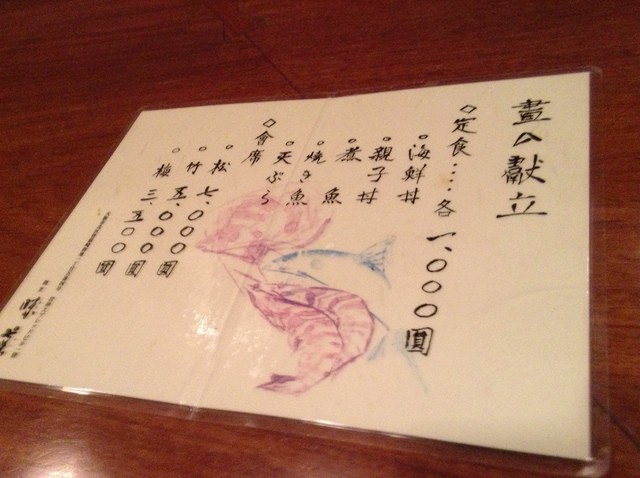 晝の献立
◇定食・・・・各 一、〇〇〇圓
○海鮮丼
○親子丼
○煮魚
○焼き魚
○天ぷら
◇會席
○松 七、〇〇〇圓
○竹 五、〇〇〇圓
○梅 三、五〇〇圓